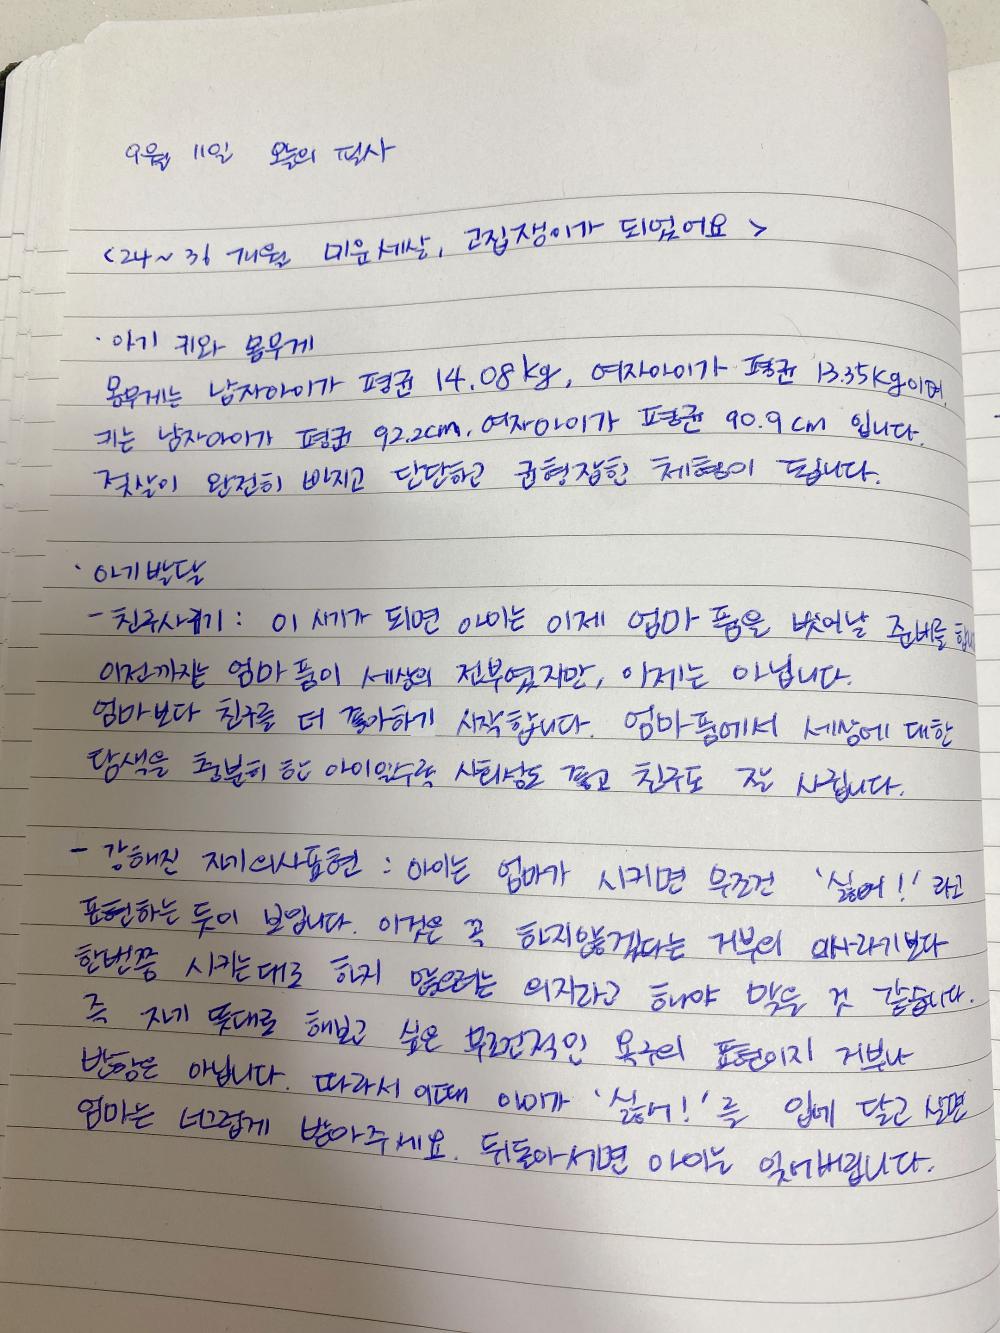 9월 11일 오늘의 필사
<24~36개월 미운세살, 고집쟁이가 되었어요>
· 아기 키와 몸무게
몸무게는 남자아이가 평균 14.08kg, 여자아이가 평균 13.35kg이며,
키는 남자아이가 평균 92.2cm, 여자아이가 평균 90.9cm 입니다.
젖살이 완전히 빠지고 단단하고 균형잡힌 체형이 됩니다.
· 아기발달
- 친구사귀기 : 이 시기가 되면 아이는 이제 엄마 품을 벗어날 준비를 합니다
이전까지는 엄마 품이 세상의 전부였지만, 이제는 아닙니다.
엄마보다 친구를 더 좋아하기 시작합니다. 엄마품에서 세상에 대한
탐색을 충분히 한 아이일수록 사회성도 좋고 친구도 잘 사귑니다.
- 강해진 자기의사표현 : 아이는 엄마가 시키면 무조건 '싫어!' 라고
표현하는 듯이 보입니다. 이것은 꼭 하지않겠다는 거부의 의사라기보다
한번쯤 시키는대로 하지 않으려는 의지라고 해야 맞을 것 같습니다.
즉 자기 뜻대로 해보고 싶은 무조건적인 욕구의 표현이지 거부나
반항은 아닙니다. 따라서 이때 아이가 '싫어!'를 입에 달고 살면
엄마는 너그럽게 받아주세요. 뒤돌아서면 아이는 잊어버립니다.